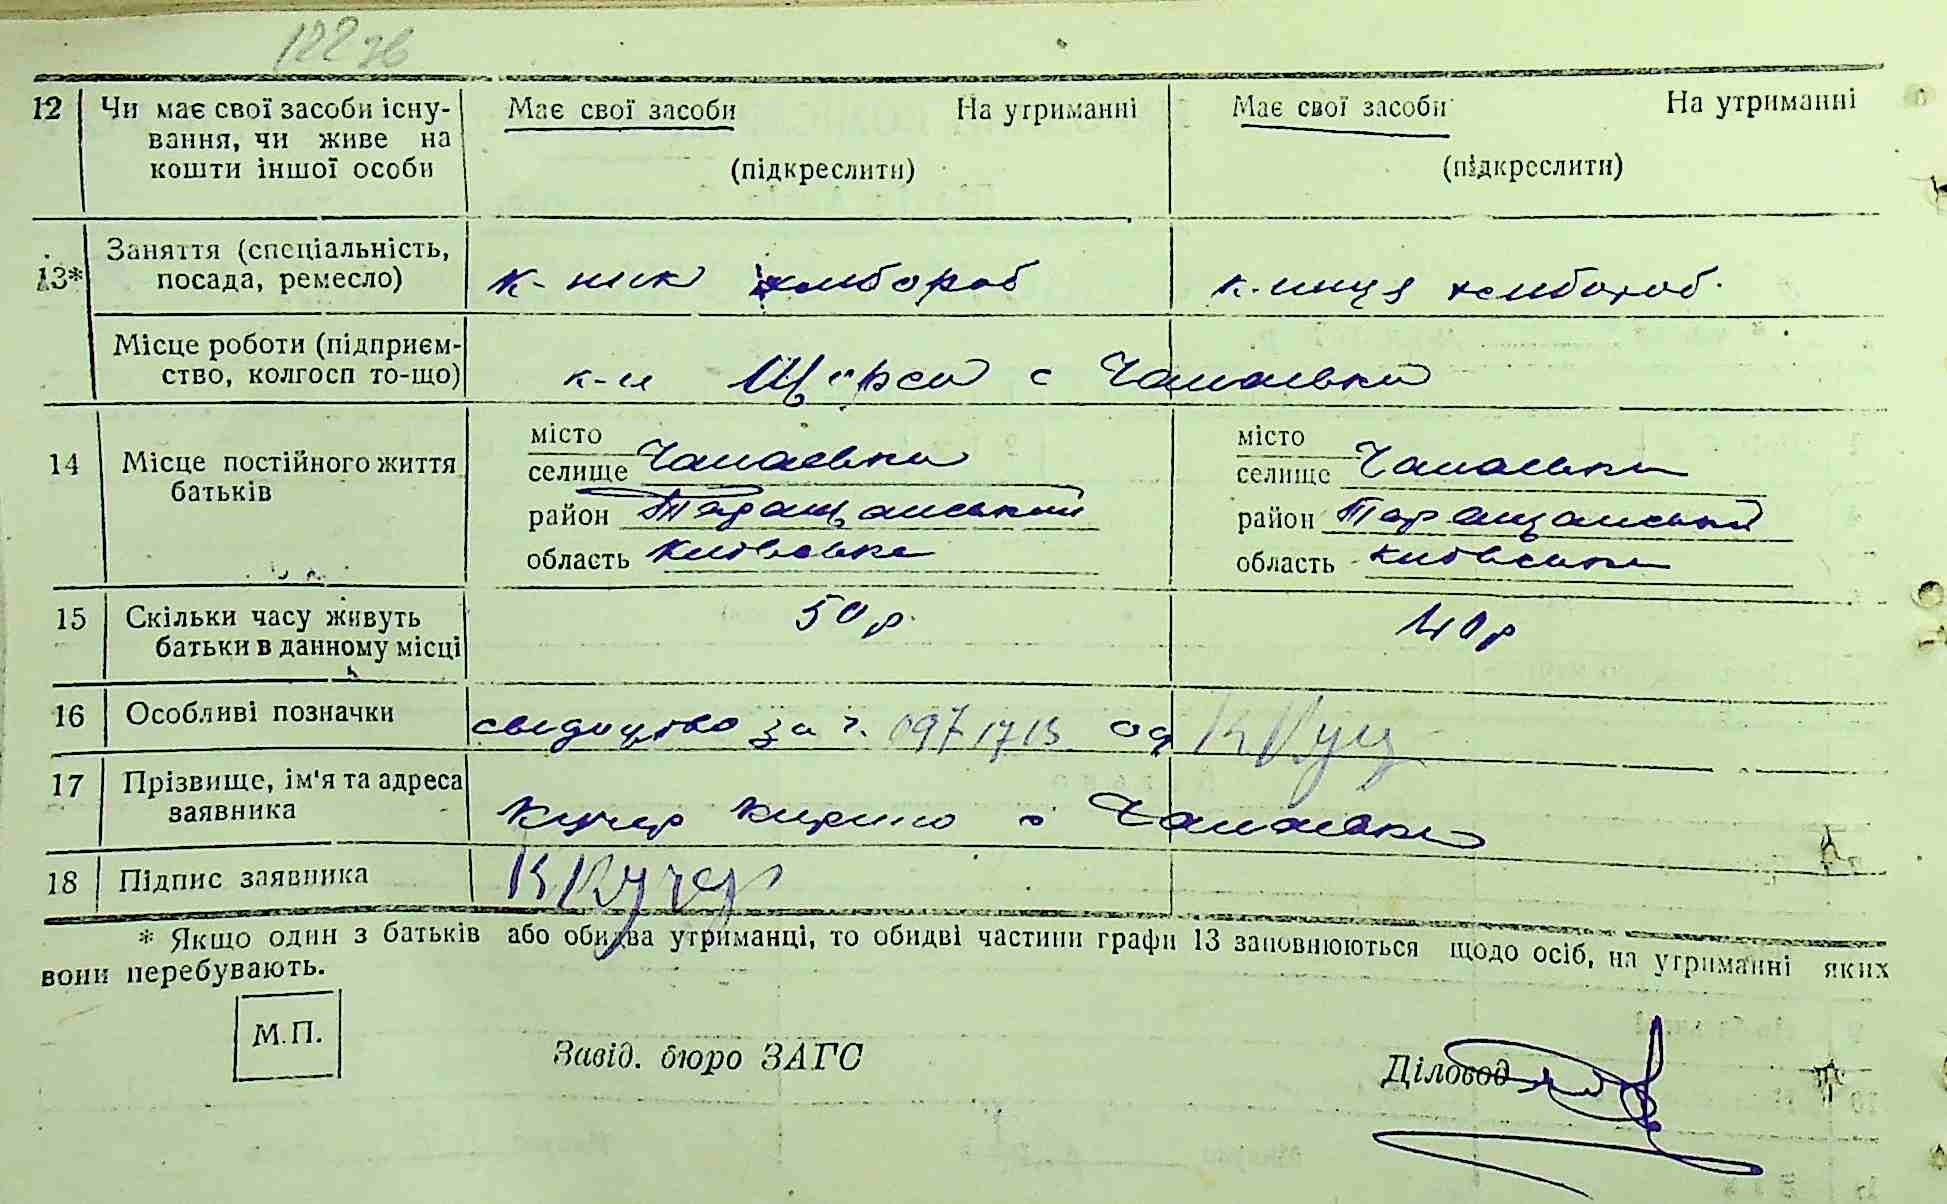 122 зв
12 Чи має свої засоби існу-
вання, чи живе на
кошти іншої особи
Має свої засоби На утриманні
(підкреслити)
Має свої засоби На утриманні
(підкреслити)
13* Заняття (спеціальність,
посада, ремесло)
к-ник хлібороб
к-ниця хлібороб.
Місце роботи (підприєм-
ство, колгосп то-що)
к-п Щорса с Чапаєвка
14 Місце постійного життя
батьків
місто
селище Чапаєвка
район Таращанський
область Київська
місто
селище Чапаєвка
район Таращанський
область Київська
15 Скільки часу живуть
батьки в данному місці
50 р.
40 р
16 Особливі позначки
свидоцтво за ч. 0971713 од ККуч
17 Прізвище, ім'я та адреса
заявника
Кучер Кирило с Чапаєвка
18 Підпис заявника
ККучер
* Якщо один з батьків або обидва утриманці, то обидві частини графи 13 заповнюються щодо осіб, на утриманні яких
вони перебувають.
М.П.
Завід. бюро ЗАГС
Діловод